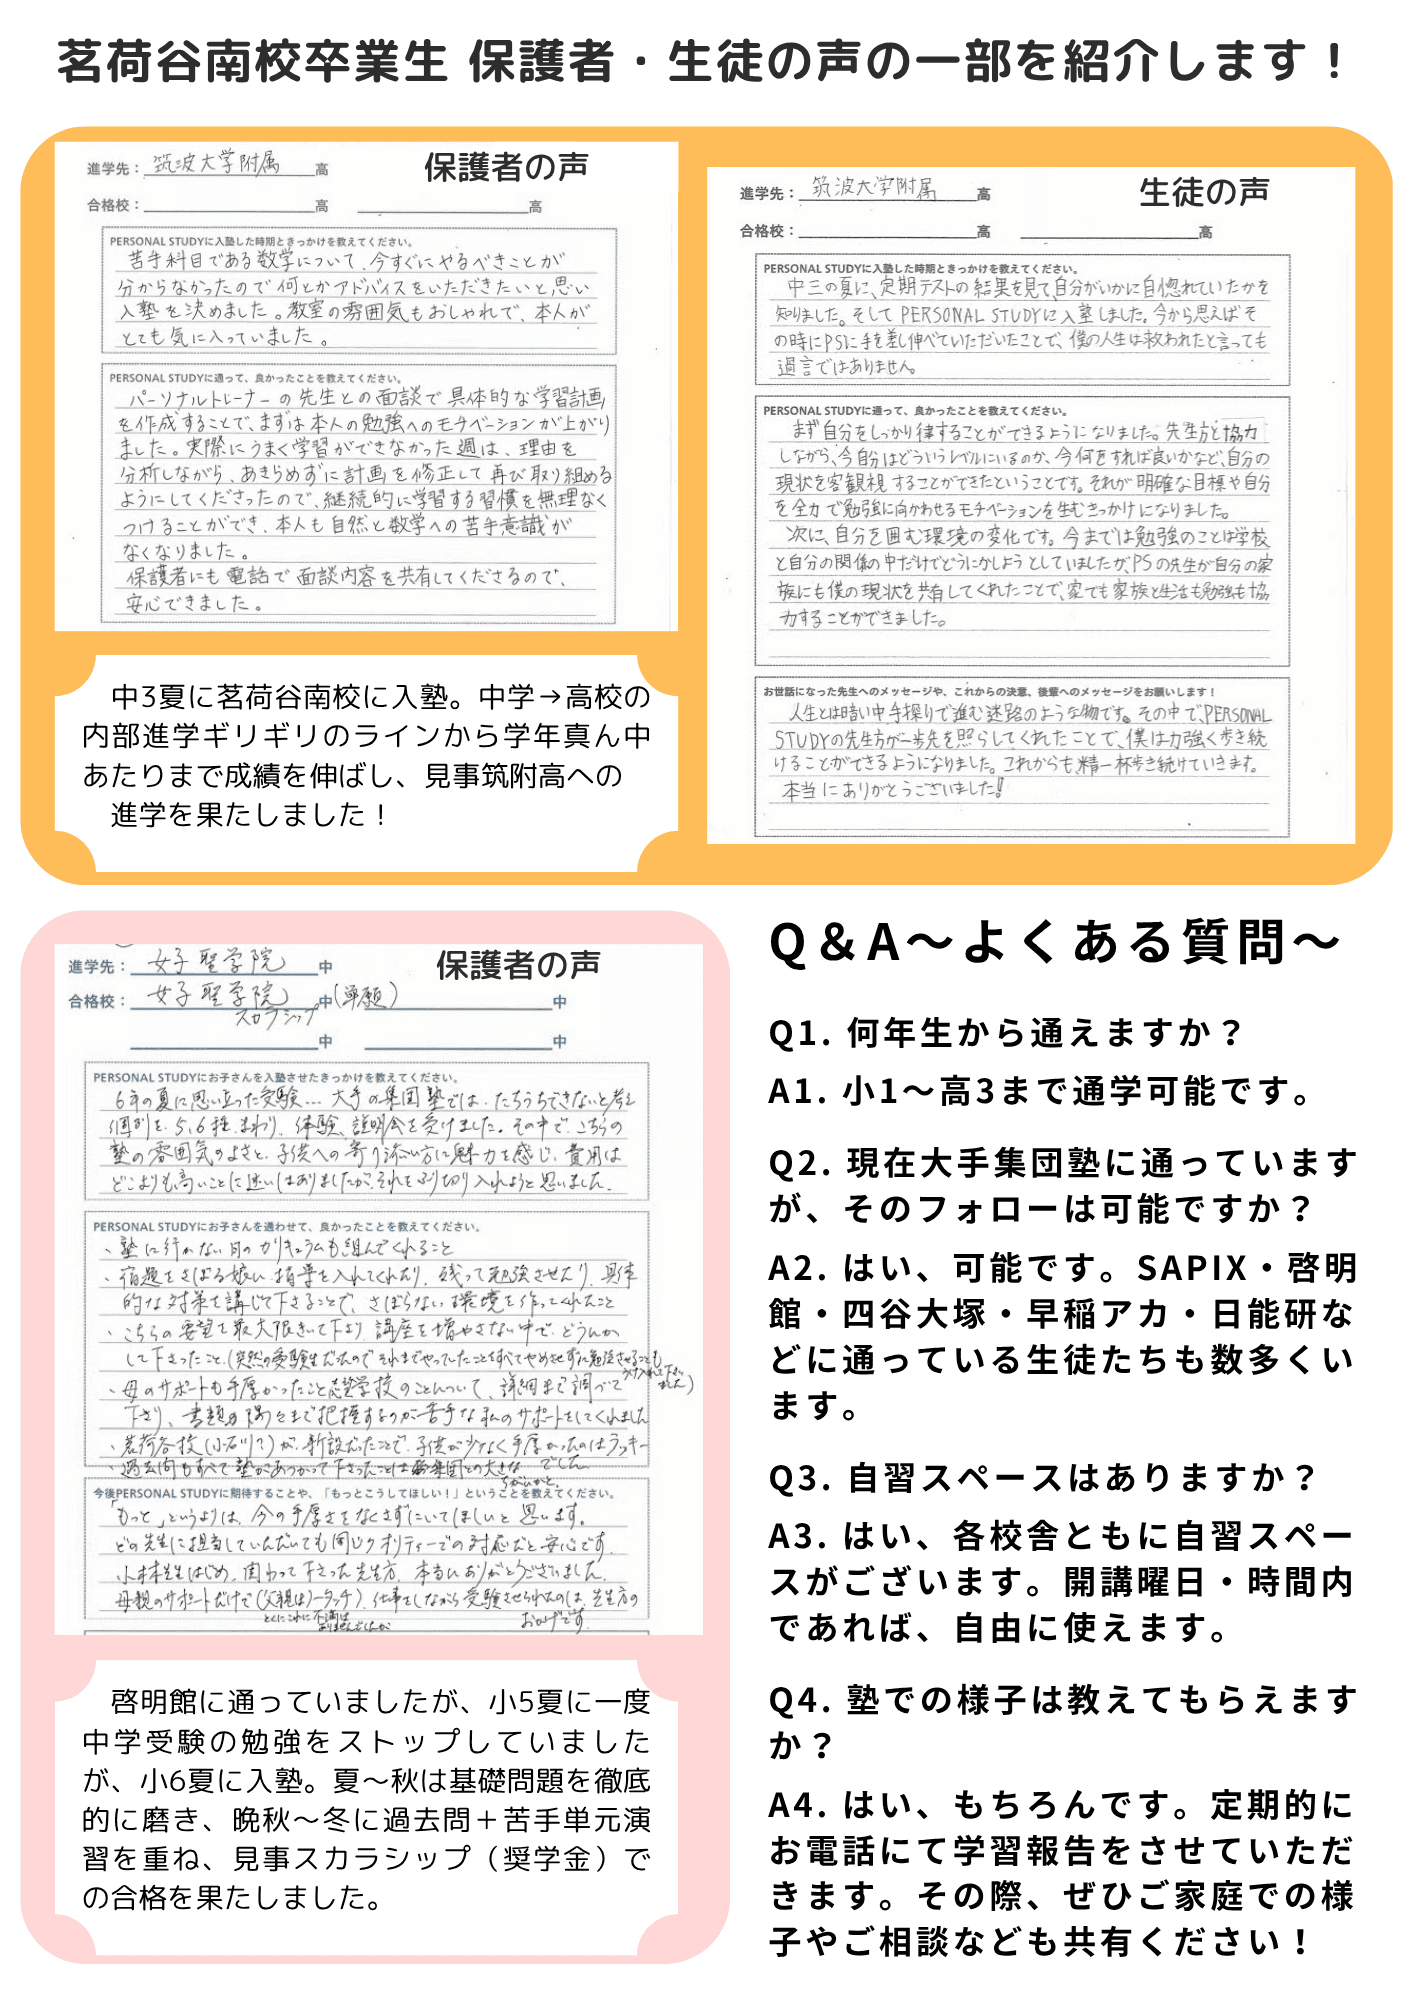 茗荷谷南校卒業生 保護者・生徒の声の一部を紹介します！
進学先： 筑波大学附属 高
保護者の声
合格校： 高 高
PERSONAL STUDYに入塾した時期ときっかけを教えてください。
苦手科目である数学について、今すぐにやるべきことが
分からなかったので何とかアドバイスをいただきたいと思い
入塾を決めました。教室の雰囲気もおしゃれで、本人が
とても気に入っていました。
PERSONAL STUDYに通って、良かったことを教えてください。
パーソナルトレーナーの先生との面談で具体的な学習計画
を作成することで、まずは本人の勉強へのモチベーションが上がり
ました。実際にうまく学習ができなかった週は、理由を
分析しながら、あきらめずに計画を修正して再び取り組める
ようにしてくださったので、継続的に学習する習慣を無理なく
つけることができ、本人も自然と数学への苦手意識が
なくなりました。
保護者にも電話で面談内容を共有してくださるので、
安心できました。
中3夏に茗荷谷南校に入塾。中学→高校の
内部進学ギリギリのラインから学年真ん中
あたりまで成績を伸ばし、見事筑附高への
進学を果たしました！
進学先： 筑波大学附属 高
生徒の声
合格校： 高 高
PERSONAL STUDYに入塾した時期ときっかけを教えてください。
中三の夏に、定期テストの結果を見て自分がいかに自惚れていたかを
知りました。そしてPERSONAL STUDYに入塾しました。今から思えばそ
の時にPSに手を差し伸べていただいたことで、僕の人生は救われたと言っても
過言ではありません。
PERSONAL STUDYに通って、良かったことを教えてください。
まず自分をしっかり律することができるようになりました。先生方と協力
しながら、今自分はどういうレベルにいるのか、今何をすれば良いかなど、自分の
現状を客観視することができたということです。それが明確な目標や自分
を全力で勉強に向かわせるモチベーションを生むきっかけになりました。
次に、自分を囲む環境の変化です。今までは勉強のことは学校
と自分の関係の中だけでどうにかしようとしていましたが、PSの先生が自分の家
族にも僕の現状を共有してくれたことで、家でも家族と生活も勉強も協
力することができました。
お世話になった先生へのメッセージや、これからの決意、後輩へのメッセージをお願いします！
人生とは暗い中手探りで進む迷路のような物です。その中で、PERSONAL
STUDYの先生方が一歩先を照らしてくれたことで、僕は力強く歩き続
けることができるようになりました。これからも精一杯歩き続けていきます。
本当にありがとうございました!!
進学先： 女子聖学院 中
保護者の声
合格校： 女子聖学院 中（単願） 中
スカラシップ
中 中
PERSONAL STUDYにお子さんを入塾させたきっかけを教えてください。
6年の夏に思い立った受験… 大手の集団塾では、たちうちできないと考え
個別を、5,6種まわり、体験、説明会を受けました。その中で、こちらの
塾の雰囲気のよさと、子供への寄り添い方に魅力を感じ、費用は
どこよりも高いことに迷いはありましたが、それをふり切り入れようと思いました。
PERSONAL STUDYにお子さんを通わせて、良かったことを教えてください。
、塾に行かない日のカリキュラムも組んでくれること
、宿題をさぼる娘に指導を入れてくれたり、残って勉強させたり、具体
的な対策を講じて下さることで、さぼらない環境を作ってくれたこと
、こちらの要望を最大限きいて下さり、講座を増やさない中で、どうにか
して下さったこと（突然の受験生だったので それまでやっていたことをすべてやめさせずに勉強させることも
うけ入れて下さいました）
、母のサポートも手厚かったこと 志望学校のことについて、詳細まで調べて
下さり、書類の隅々まで把握するのが苦手な私のサポートをしてくれました
、茗荷谷校（小石川？）が、新設だったことで、子供が少なく手厚かったのはラッキー
でした
、過去問もすべて塾があつかって下さったことは 集団との大きな
ちがいかと。
今後PERSONAL STUDYに期待することや、「もっとこうしてほしい！」ということを教えてください。
「もっと」というよりは、今の手厚さをなくさずにいてほしいと思います。
どの先生に担当していただいても同じクオリティーでの対応だと安心です。
小林先生はじめ、関わって下さった先生方、本当にありがとうございました。
母親のサポートだけで（父親はノータッチ）、仕事をしながら受験させられたのは、先生方の
とくにこれに不満はありませんでしたが
おかげです。
啓明館に通っていましたが、小5夏に一度
中学受験の勉強をストップしていました
が、小6夏に入塾。夏～秋は基礎問題を徹底
的に磨き、晩秋～冬に過去問＋苦手単元演
習を重ね、見事スカラシップ（奨学金）で
の合格を果たしました。
Q＆A～よくある質問～
Q1. 何年生から通えますか？
A1. 小1～高3まで通学可能です。
Q2. 現在大手集団塾に通っています
が、そのフォローは可能ですか？
A2. はい、可能です。SAPIX・啓明
館・四谷大塚・早稲アカ・日能研な
どに通っている生徒たちも数多くい
ます。
Q3. 自習スペースはありますか？
A3. はい、各校舎ともに自習スペー
スがございます。開講曜日・時間内
であれば、自由に使えます。
Q4. 塾での様子は教えてもらえます
か？
A4. はい、もちろんです。定期的に
お電話にて学習報告をさせていただ
きます。その際、ぜひご家庭での様
子やご相談なども共有ください！